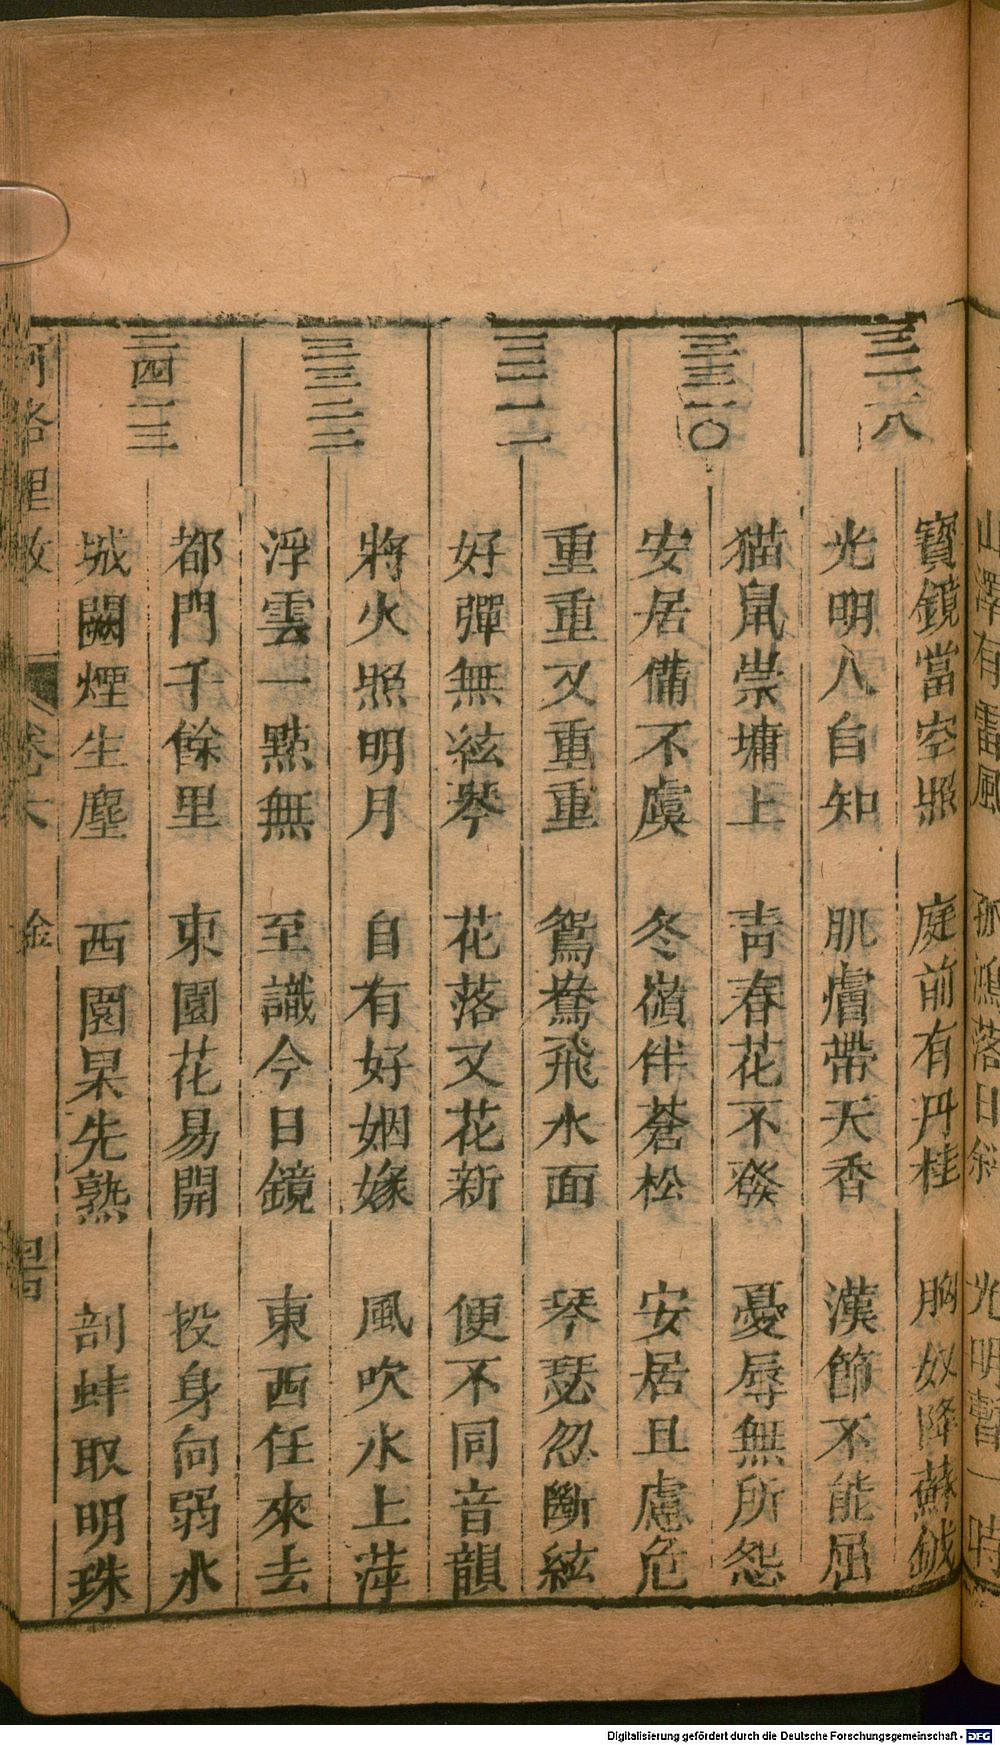 山澤有雷風　孤鴻落日斜　光明暫一時
三一一八
寶鏡當空照　庭前有丹桂　胸奴降蘇鉞
光明入自知　肌膚帶天香　漢節不能屈
三三一〇
猫鼠崇墉上　青春花不發　憂辱無所怨
安居備不虞　冬嶺伴蒼松　安居且慮危
三二一一
重重又重重　鴛鴦飛水面　琴瑟忽斷絃
好彈無絃琴　花落又花新　便不同音韻
三三二二
將火照明月　自有好姻緣　風吹水上萍
浮雲一點無　至識今日鏡　東西任來去
三四一三
都門千餘里　東園花易開　投身向弱水
城闕煙生塵　西園杲先熟　剖蚌取明珠
河洛理數　卷六　金　四
Digitalisierung gefördert durch die Deutsche Forschungsgemeinschaft - DFG